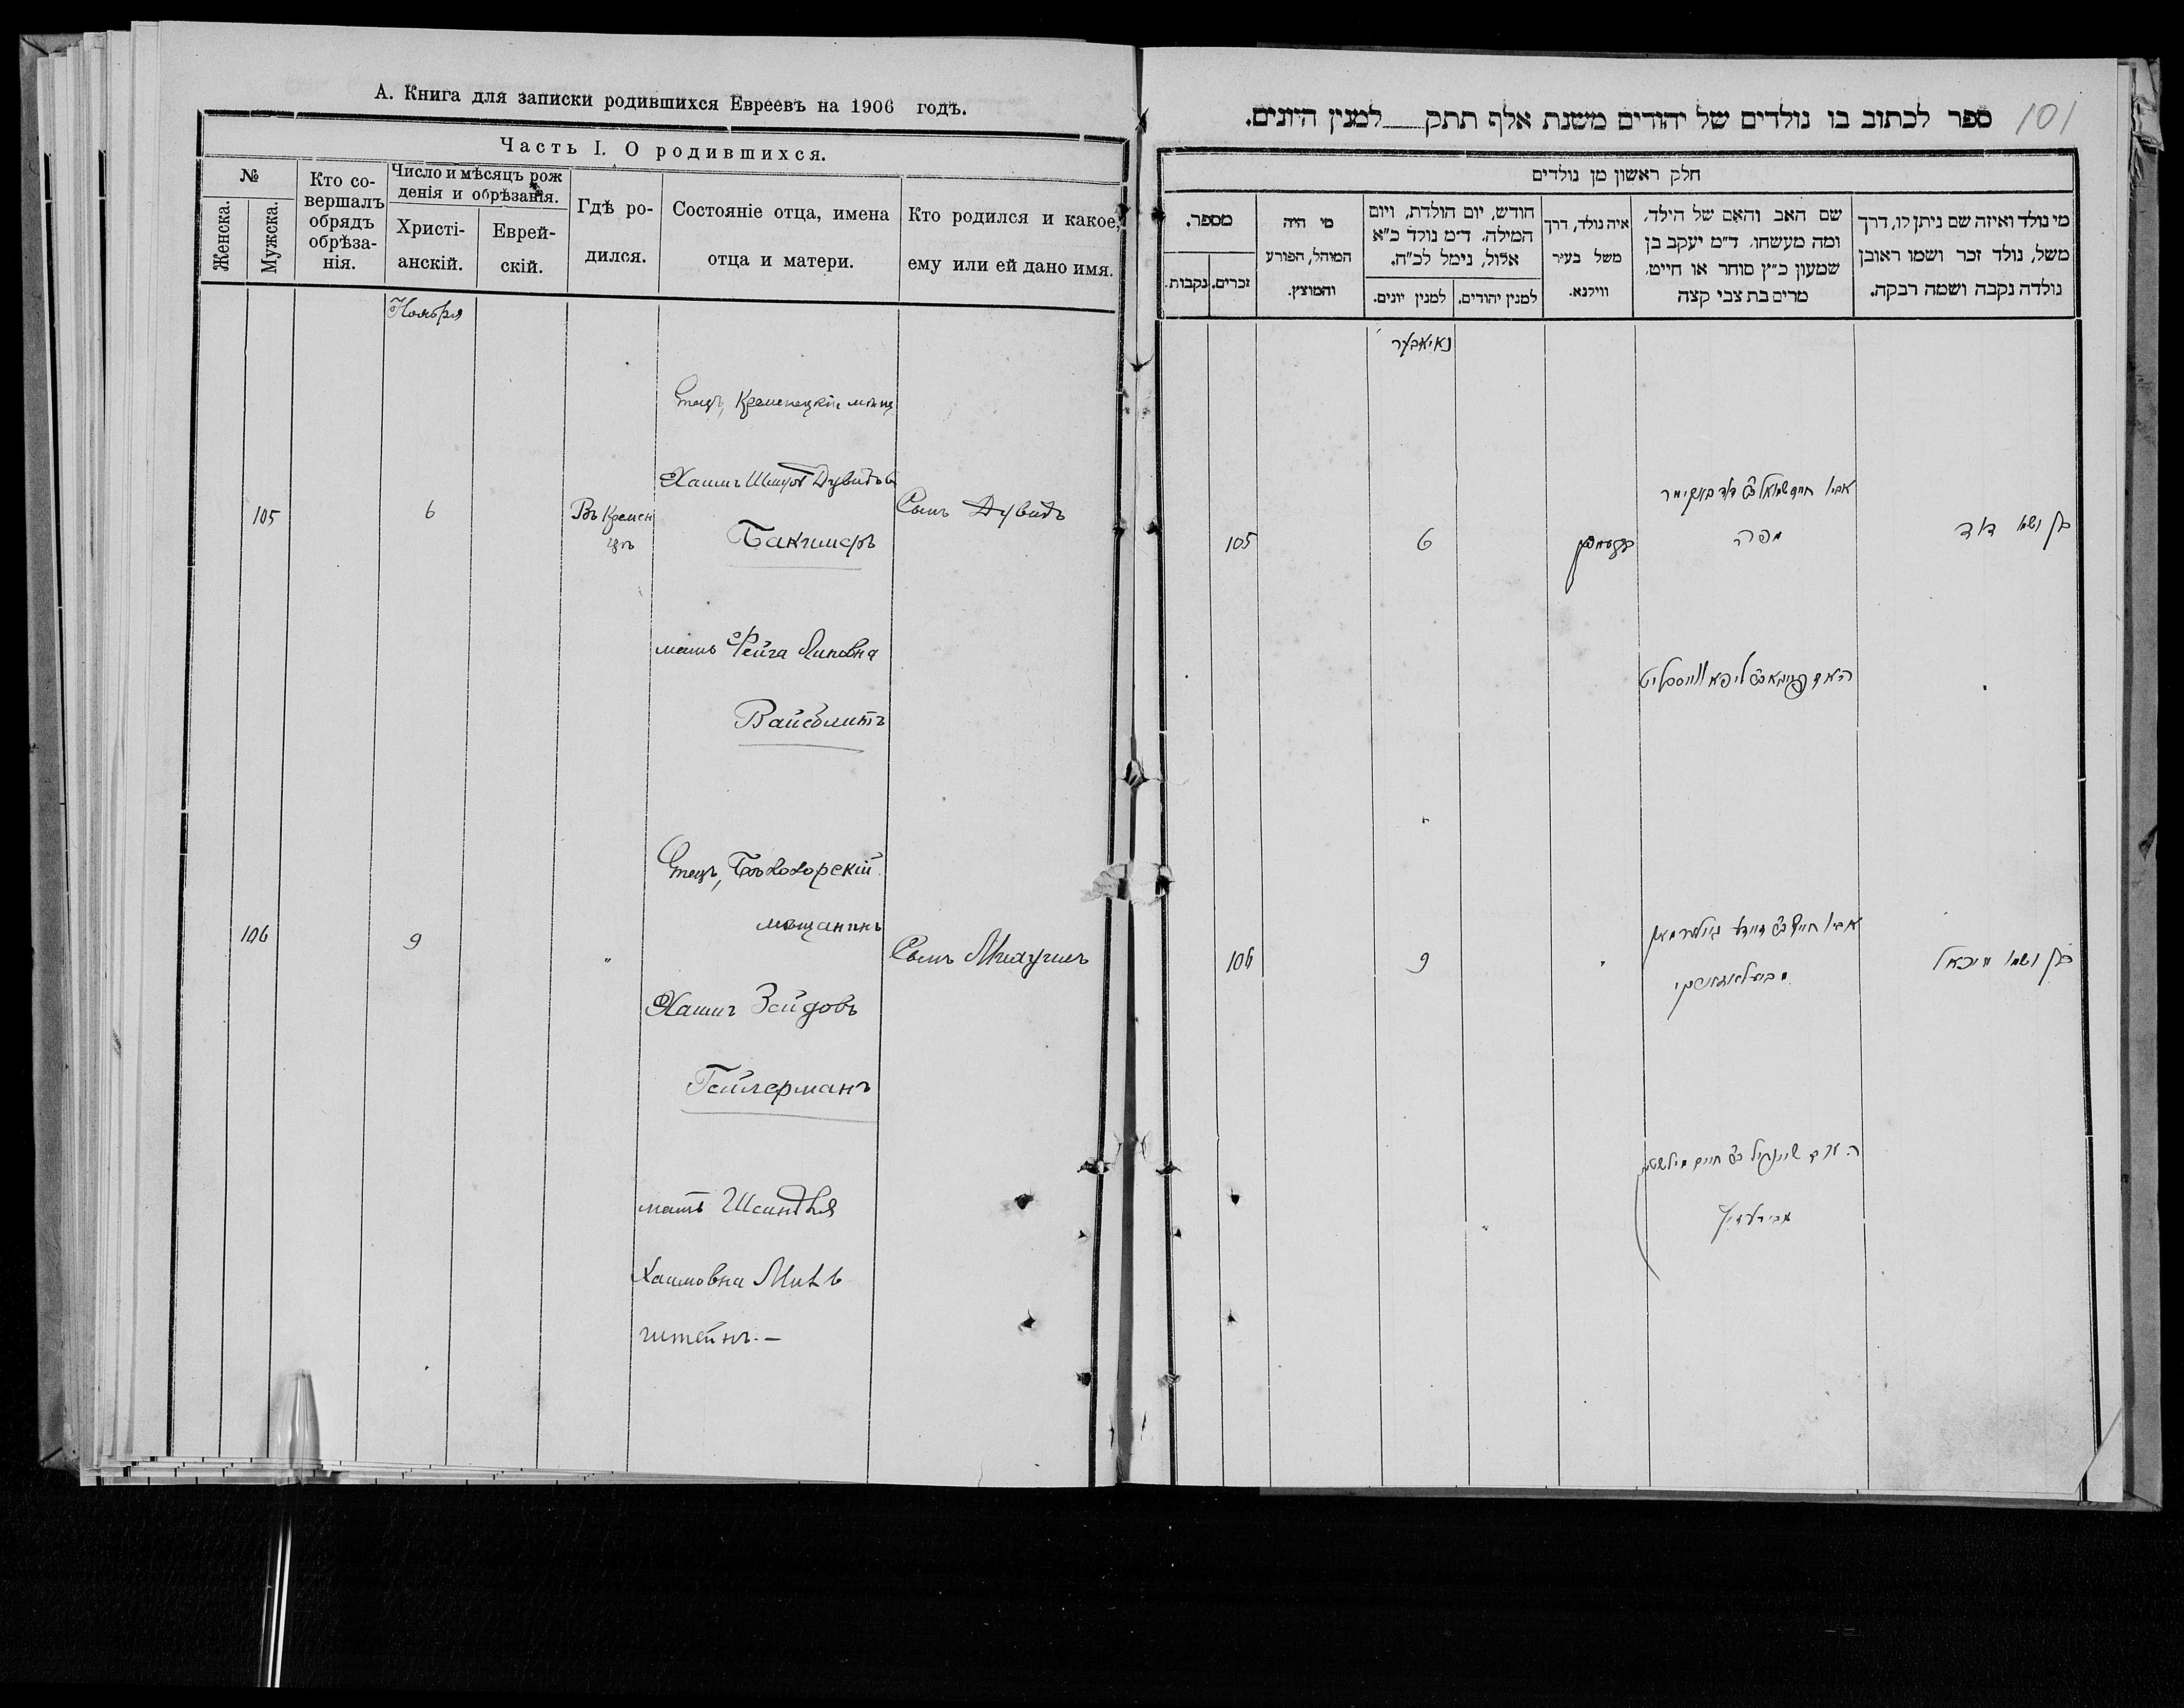 А. Книга для записки родившихся Евреевъ на 1906 годъ.
Часть I. О родившихся.
№
Женска.
Мужска.
Кто совершалъ обрядъ обрѣзанія.
Число и мѣсяцъ рожденія и обрѣзанія.
Христіанскій.
Еврейскій.
Гдѣ родился.
Состояніе отца, имена отца и матери.
Кто родился и какое, ему или ей дано имя.
Ноября
105
6
Въ Кремен
цѣ
Отецъ, Кременецкій мѣщ.
Хаимъ Шмуль Дувидов
Бакимеръ
мать Фейга Липовна
Вайсблитъ
Сынъ Дувидъ
106
9
"
Отецъ, Бѣлозорскій
мѣщанинъ
Хаимъ Зейдовъ
Гейлерманъ
мать Шейндля
Хаимовна Миль
штейнъ.—
Сынъ Михуиль
101
ספר לכתוב בו נולדים של יהודים משנת אלף תתק___למנין היונים.
חלק ראשון מן נולדים
מי נולד ואיזה שם ניתן לו, דרך
משל, נולד זכר ושמו ראובן
נולדה נקבה ושמה רבקה.
שם האב והאם של הילד,
ומה מעשהו. ד״מ יעקב בן
שמעון כ״ץ סוחר או חייט,
מרים בת צבי קצה
איה נולד, דרך
משל בעיר
ווילנא.
חודש, יום הולדת, ויום
המילה. ד״מ נולד כ״א
אלול, נימל לכ״ח.
למנין יהודים.
למנין יונים.
מי היה
המוהל, הפורע
והמוצץ.
מספר.
זכרים.
נקבות.
נאיאבער
בן ושמו דוד
אביו חיים שמואל ב״ר דוד באקימער
מפה
קרעמניץ
6
105
האם פייגא ב״ר ליפא ווייסבליט
בן ושמו מיכאל
אביו חיים ב״ר זיידע גיילערמאן
"
9
106
האם שיינדיל ב״ר חיים מילשטיין